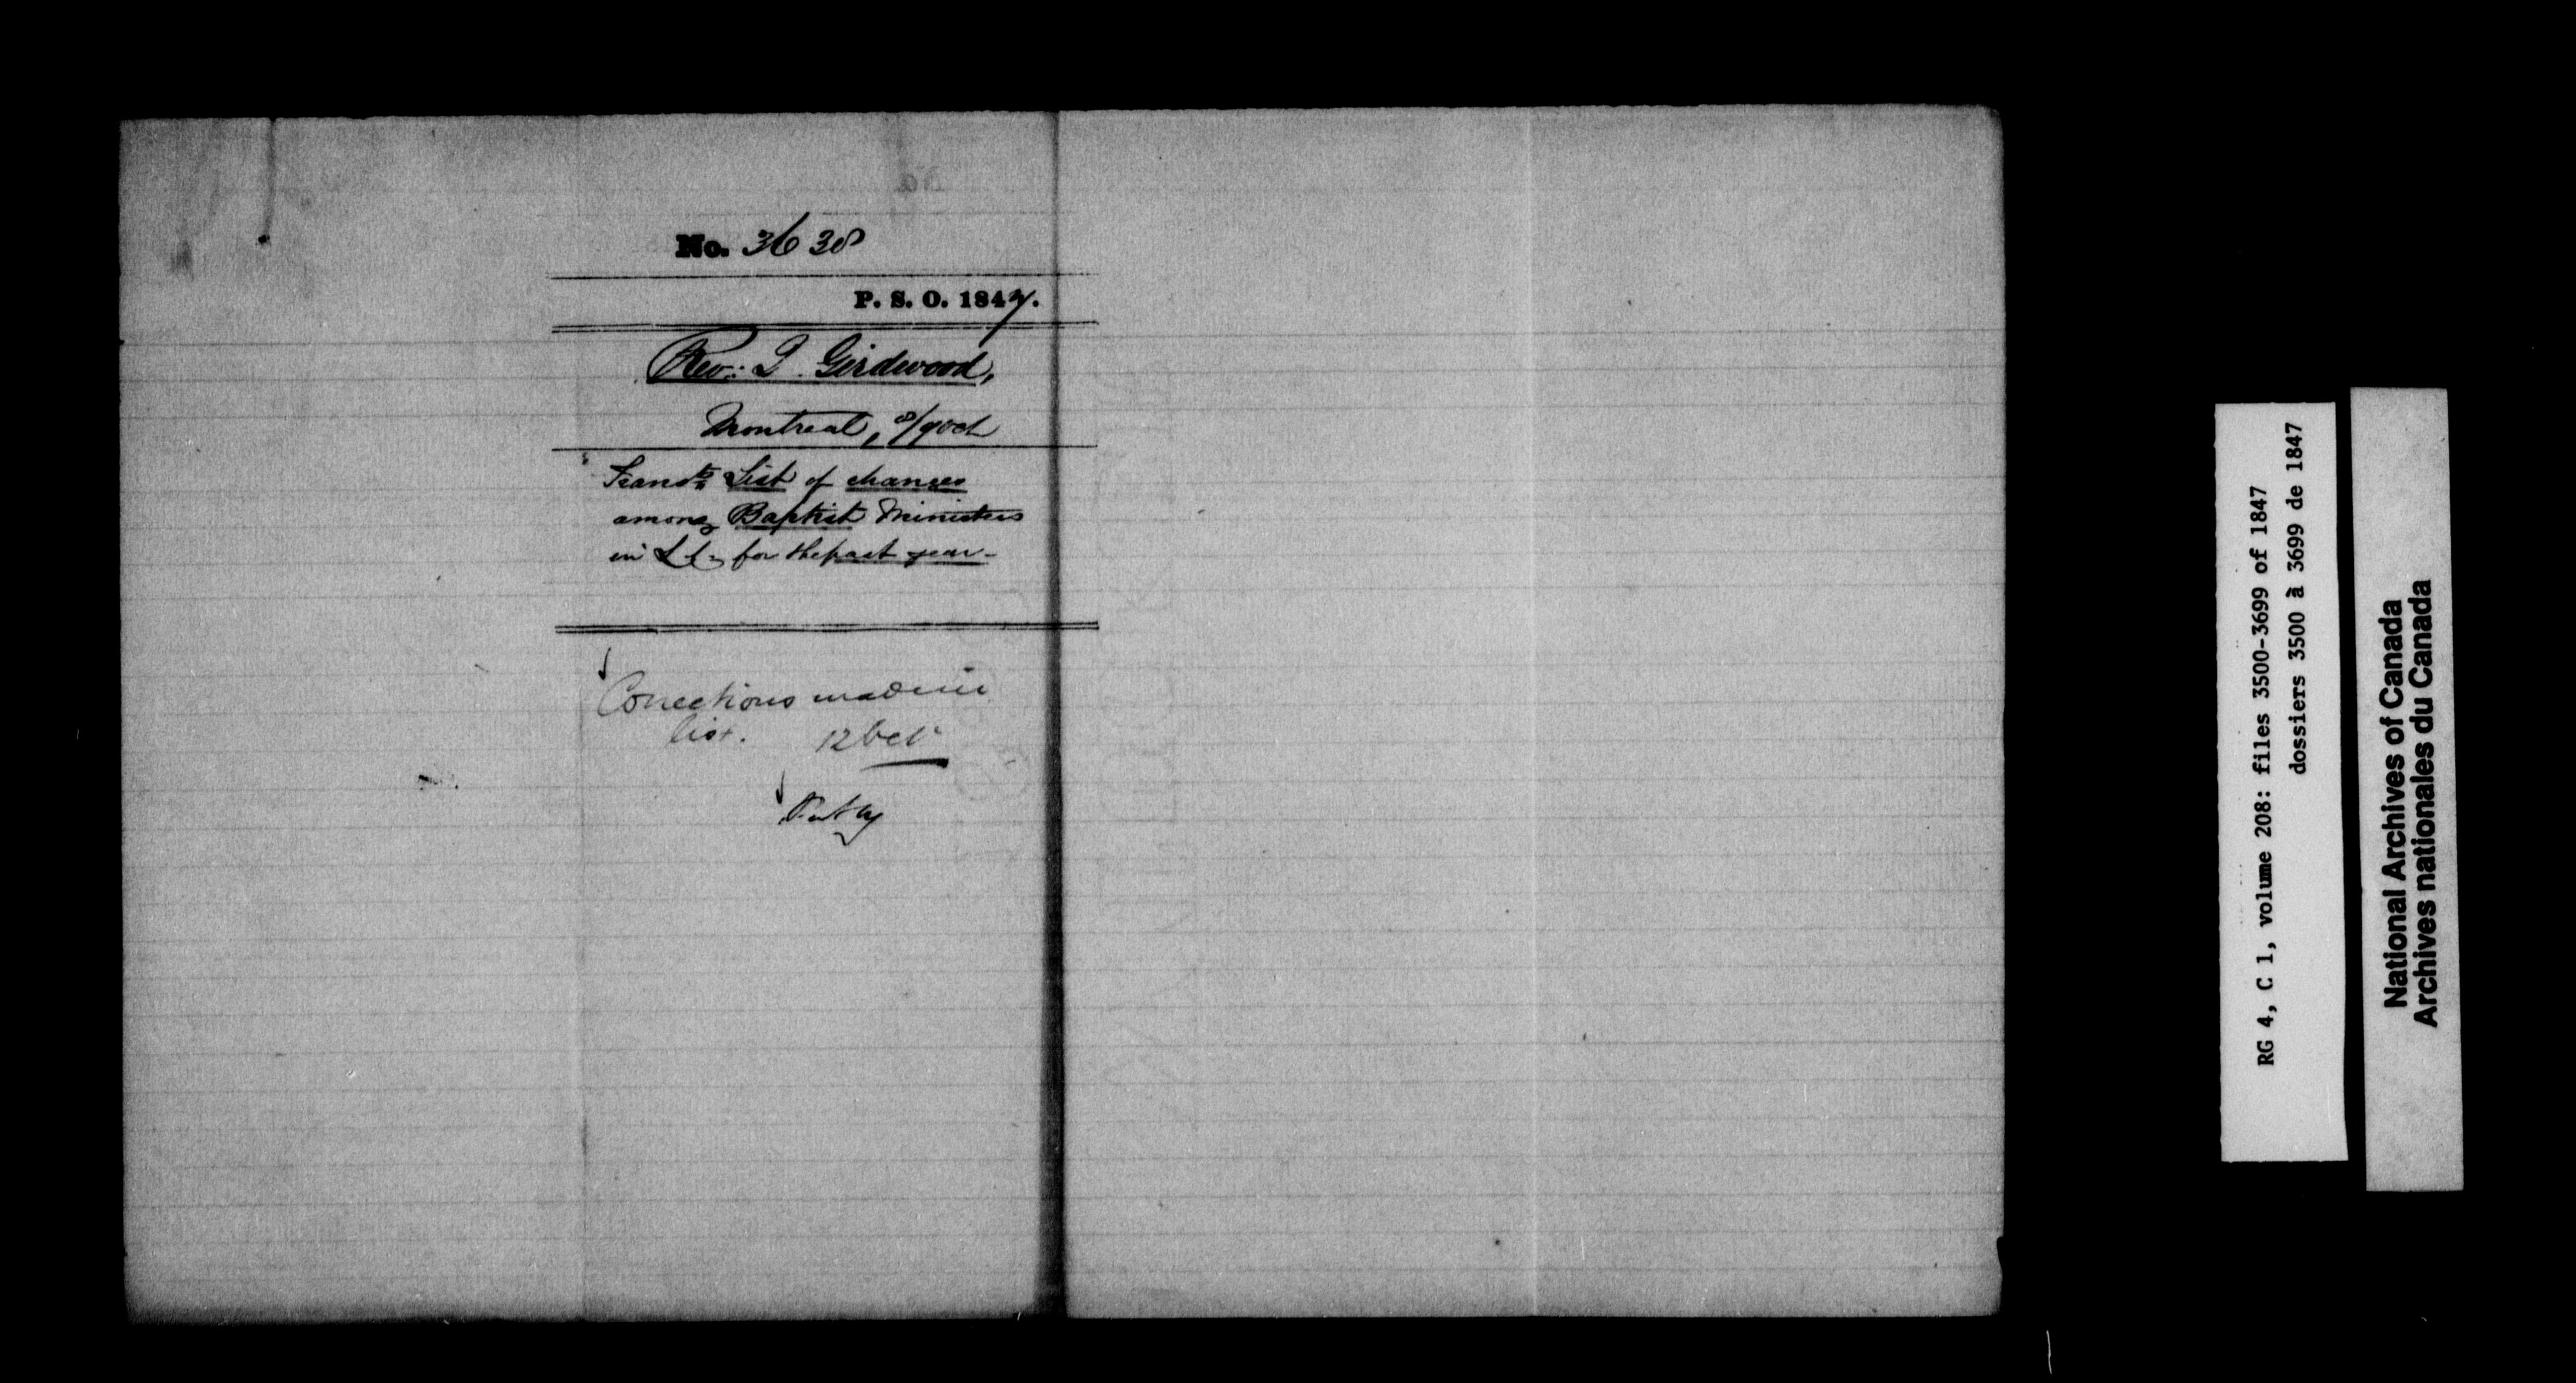 No. 3638
P. S. O. 1847.
Rev: J. Girdwood,
Montreal, 8/9 Oct
Transts. List of changes
among Baptist Ministers
in L C. for the past year -
Corrections made in
list. 12 Oct
Put by
RG 4, C 1, volume 208: files 3500-3699 of 1847
dossiers 3500 à 3699 de 1847
National Archives of Canada
Archives nationales du Canada